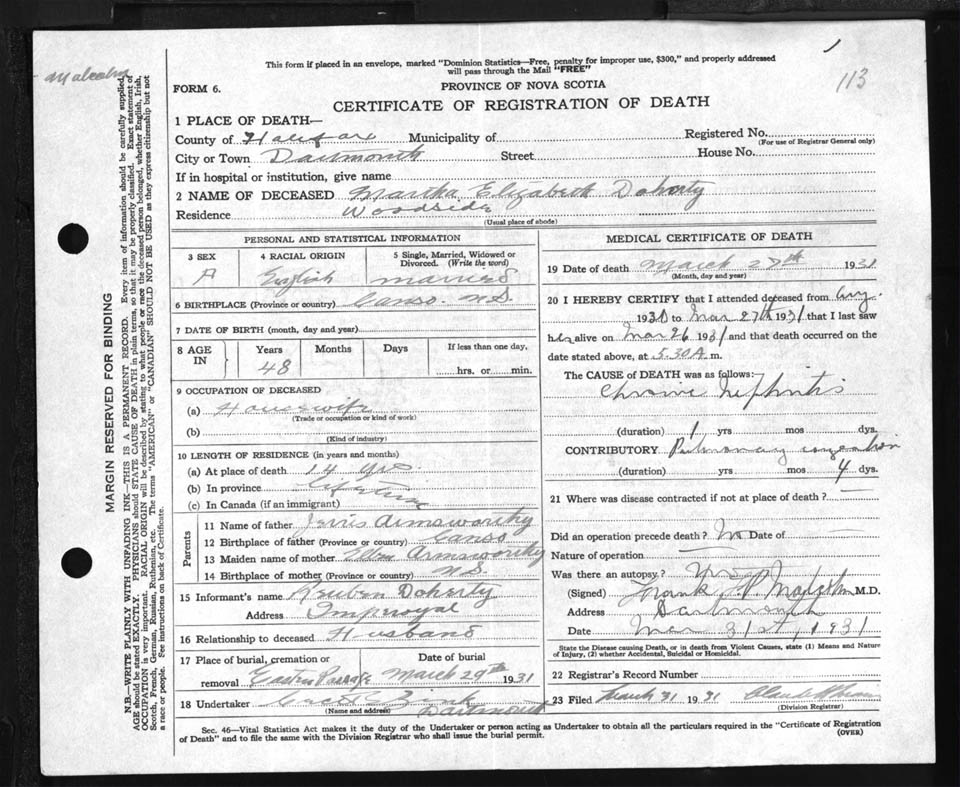 This form if placed in an envelope, marked "Dominion Statistics—Free, penalty for improper use, $300," and properly addressed
will pass through the Mail "FREE"
113
Malcolm
FORM 6.
PROVINCE OF NOVA SCOTIA
CERTIFICATE OF REGISTRATION OF DEATH
1 PLACE OF DEATH—
County of Halifax Municipality of Registered No.
(For use of Registrar General only)
City or Town Dartmouth Street House No.
If in hospital or institution, give name
2 NAME OF DECEASED Martha Elizabeth Doherty
Residence Woodside
(Usual place of abode)
MARGIN RESERVED FOR BINDING
N.B.—WRITE PLAINLY WITH UNFADING INK—THIS IS A PERMANENT RECORD. Every item of information should be carefully supplied.
AGE should be stated EXACTLY. PHYSICIANS should STATE CAUSE OF DEATH in plain terms, so that it may be properly classified. Exact statement of
OCCUPATION is very important. RACIAL ORIGIN will be described by stating to what people or race the deceased person belonged, whether English, Irish,
Scotch, French, German, Russian, Ruthenian, etc. The terms "AMERICAN" or "CANADIAN" SHOULD NOT BE USED as they express citizenship but not
a race or people. See instructions on back of Certificate.
PERSONAL AND STATISTICAL INFORMATION
3 SEX
4 RACIAL ORIGIN
English
5 Single, Married, Widowed or
Divorced. (Write the word)
married
6 BIRTHPLACE (Province or country) Canso. N.S.
7 DATE OF BIRTH (month, day and year)
8 AGE
IN
Years Months Days If less than one day,
48
hrs. or min.
9 OCCUPATION OF DECEASED
(a) Housewife
(Trade or occupation or kind of work)
(b)
(Kind of industry)
10 LENGTH OF RESIDENCE (in years and months)
(a) At place of death 14 yrs.
(b) In province lifetime
(c) In Canada (if an immigrant)
Parents
11 Name of father Armsworthy
12 Birthplace of father (Province or country) Canso
13 Maiden name of mother Armsworthy
14 Birthplace of mother (Province or country) N.S.
15 Informant's name Reuben Doherty
Address Imperoyal
16 Relationship to deceased Husband
17 Place of burial, cremation or Date of burial
removal Eastern Passage March 29th 1931
18 Undertaker Zink
(Name and address) Dartmouth
MEDICAL CERTIFICATE OF DEATH
19 Date of death March 27th 1931
(Month, day and year)
20 I HEREBY CERTIFY that I attended deceased from Aug.
1930 to Mar 27th 1931 that I last saw
her alive on Mar 26 1931 and that death occurred on the
date stated above, at 5.30 A. m.
The CAUSE of DEATH was as follows:
Chronic Nephritis
(duration) 1 yrs mos. dys.
CONTRIBUTORY Pulmonary congestion
(duration) yrs mos 4 dys.
21 Where was disease contracted if not at place of death? —
Did an operation precede death? No Date of
Nature of operation
Was there an autopsy? No
(Signed) Frank Malcolm M.D.
Address Dartmouth
Date Mar 31st, 1931
State the Disease causing Death, or in death from Violent Causes, state (1) Means and Nature
of Injury, (2) whether Accidental, Suicidal or Homicidal.
22 Registrar's Record Number
23 Filed March 31 1931
(Division Registrar)
Sec. 46—Vital Statistics Act makes it the duty of the Undertaker or person acting as Undertaker to obtain all the particulars required in the "Certificate of Registration
of Death" and to file the same with the Division Registrar who shall issue the burial permit.
(OVER)